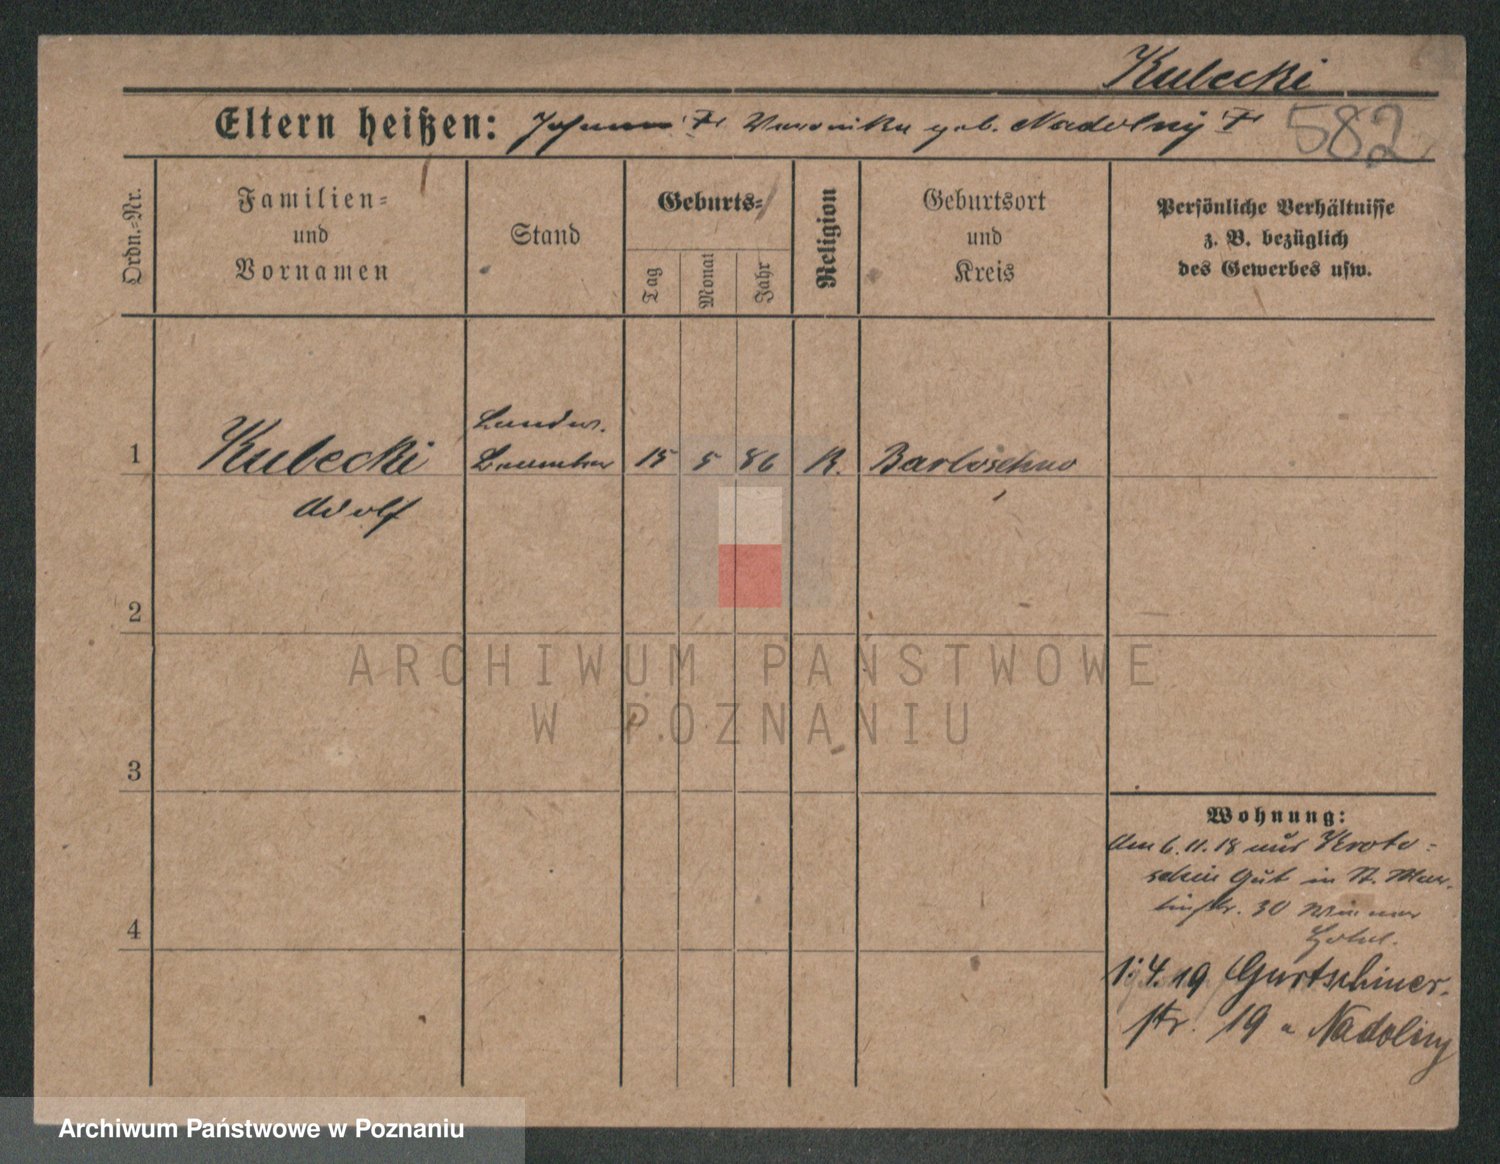 Kubecki
Eltern heißen: Johann † Veronika geb. Nadolny †
582
Ordn.-Nr.
Familien-
und
Vornamen
Stand
Geburts-
Tag
Monat
Jahr
Religion
Geburtsort
und
Kreis
Persönliche Verhältnisse
z. B. bezüglich
des Gewerbes usw.
1
Kubecki
Adolf
Landw.
15
5
86
K.
Barloschno
2
3
4
Wohnung:
Am 6.11.18 aus Kroto-
schin Gut in St. Mar-
tinstr. 30
Hotel.
1.4.19 Gurtschiner-
str. 19 a Nadolny
ARCHIWUM PAŃSTWOWE
W POZNANIU
Archiwum Państwowe w Poznaniu